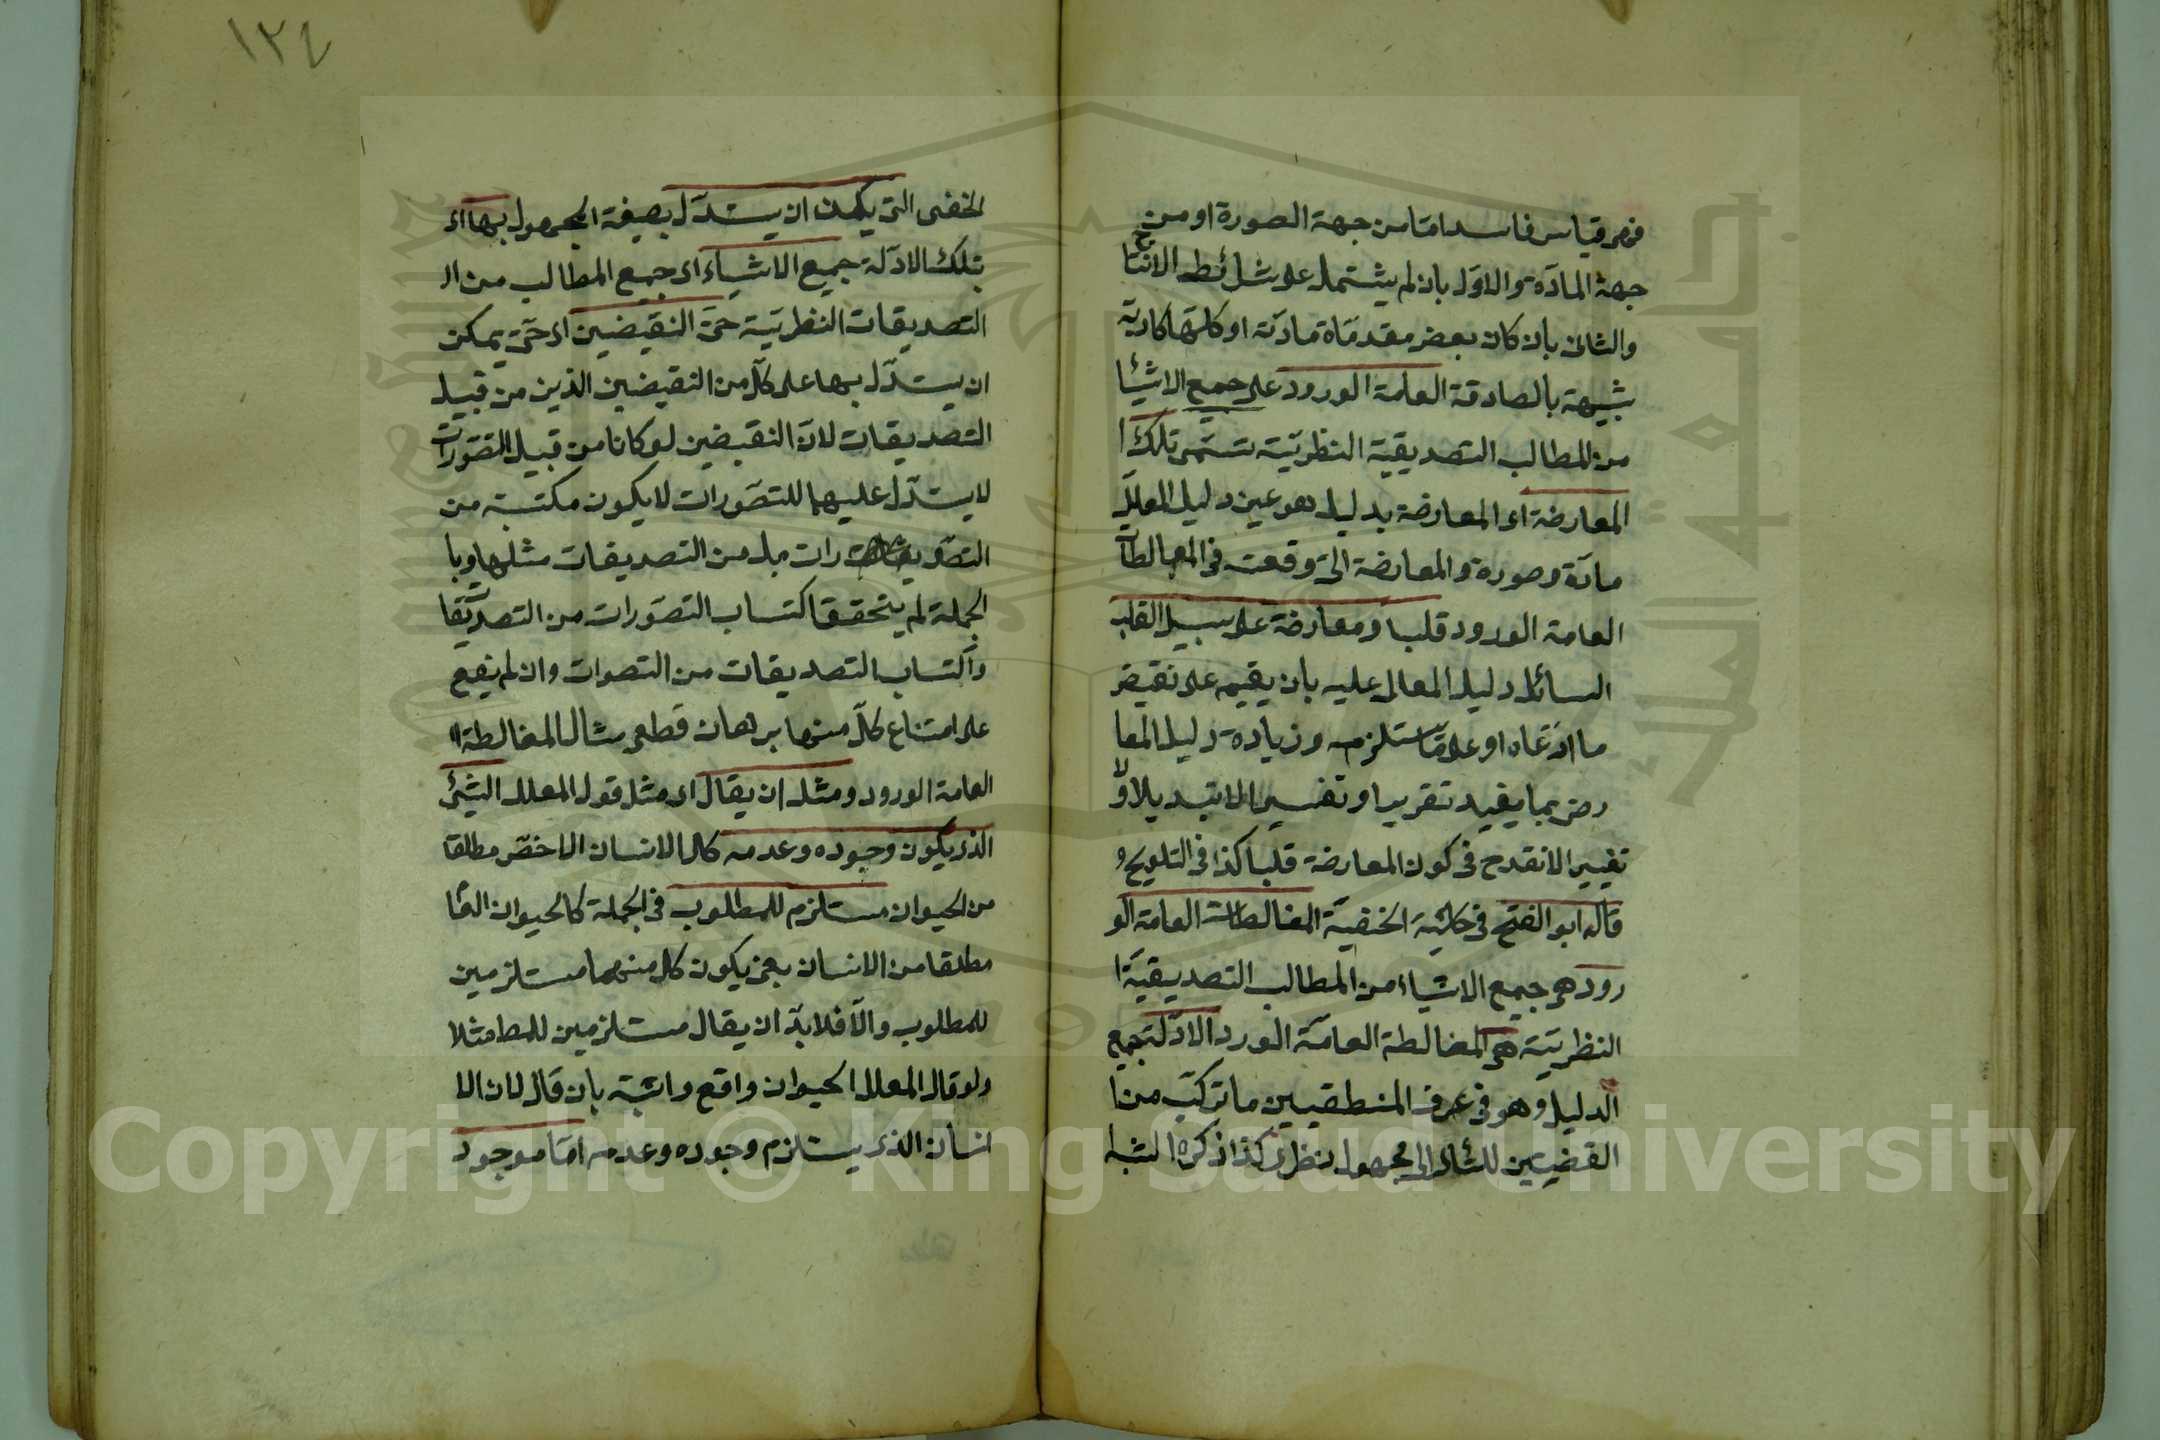 فهو قياس فاسد اما من جهة الصورة او من
جهة المادة والاول بان لم يشتمل على شرائط الانتاج
والثاني بان كان بعض مقدماة مادته او كلتها كاذبة
شبيهة بالصادقة العامة الورود على جميع الاشيا
من المطالب التصديقية النظرية تسمى تلك ا
المعارضة اى المعارضة بدليل هو عين دليل المعلل
مادة وصورة والمعارضة التى وقعت فى المغالطات
العامة الورود قلبا ومعارضة على سبيل القلب
السائل دليل المعلل عليه بان يقيمه على نقيض
ما ادعاه او على ما يستلزمه وزيادة دليل المعا
رض بما يفيد تقريرا وتفسيرا لا تبديلا ولا
تغييرا لا تقدح فى كون المعارضة قلبا كذا فى التلويح و
قاله ابو الفتح فى حاشية الحنفية المغالطات العامة الو
رود هى جميع الاشياء من المطالب التصديقية ا
النظرية هى المغالطة العامة الورود الادلة جمع
الدليل وهو فى عرف المنطقيين ما تركب من ا
القضيتين للتأدى الى مجهول نظرى كذا ذكره
١٢٤
الخفى التى يمكن ان يستدل بصيغة المجهول بها اى
بتلك الادلة جميع الاشياء اى جميع المطالب من ال
التصديقات النظرية حتى النقيضين اى حتى يمكن
ان يستدل بها على كل من النقيضين الذين من قبيل
التصديقات لان النقيضين لو كانا من قبيل التصورات
لا يستدل عليهما للتصورات لا يكون مكتسبة من
رات بل من التصديقات مثلها وبا
الجملة لم يتحقق اكتساب التصورات من التصديقا
واكتساب التصديقات من التصوات وان لم يقع
على امتناع كل منهما برهان قطعى مثال المغالطة ال
العامة الورود ومثل ان يقال اى مثل قول المعلل الشئ
الذى يكون وجوده وعدمه كالا لانسان الاخص مطلقا
من الحيوان مستلزم للمطلوب فى الجملة كالحيوان العا
مطلقا من الانسان يعنى يكون كل منهما مستلزمين
للمطلوب والا فلا بد ان يقال مستلزمين للمط مثلا
ولو قال المعلل الحيوان واقع واثبته بان قال لان الا
انسان الذى يستلزم وجوده وعدمه اما موجود
Copyright © King Saud University